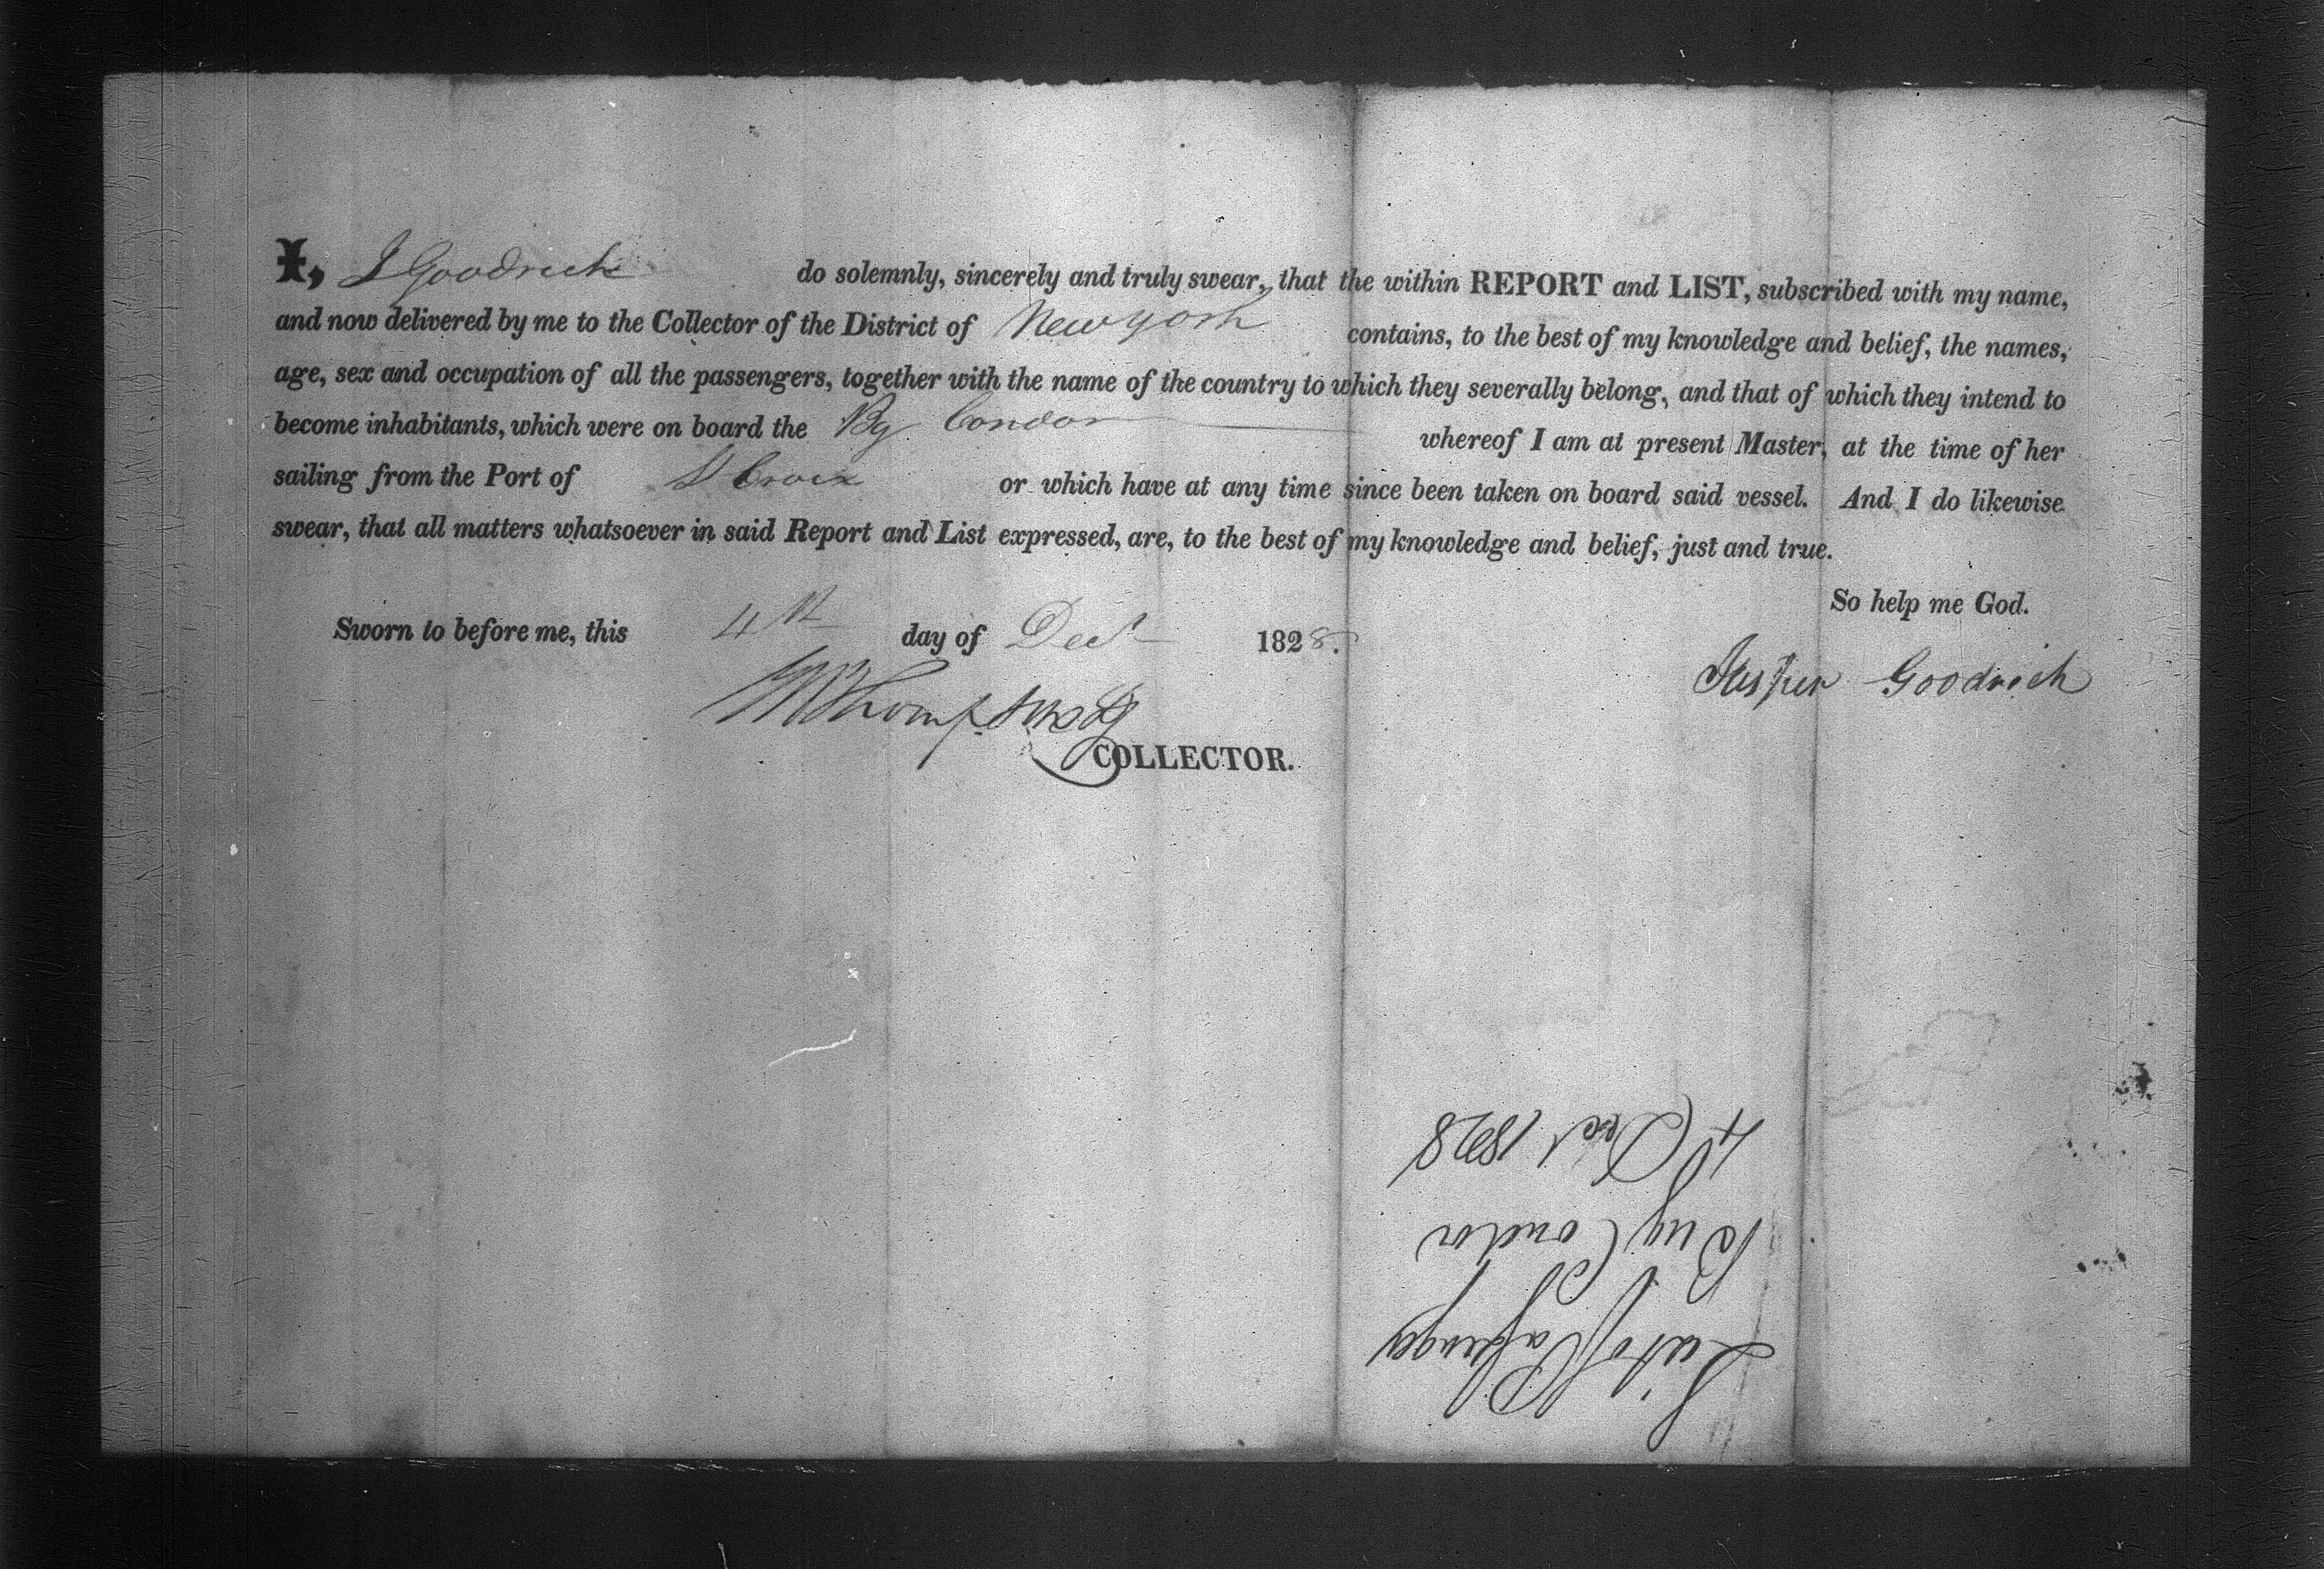 I, J Goodrich do solemnly, sincerely and truly swear, that the within REPORT and LIST, subscribed with my name,
and now delivered by me to the Collector of the District of New york contains, to the best of my knowledge and belief, the names,
age, sex and occupation of all the passengers, together with the name of the country to which they severally belong, and that of which they intend to
become inhabitants, which were on board the Bg Condor whereof I am at present Master, at the time of her
sailing from the Port of St Croix or which have at any time since been taken on board said vessel. And I do likewise
swear, that all matters whatsoever in said Report and List expressed, are, to the best of my knowledge and belief, just and true.
So help me God.
Sworn to before me, this 4th day of Dec 1828.
Jasper Goodrich
Thompson
COLLECTOR.
List of Passengers
Brig Condor
4 Dec 1828